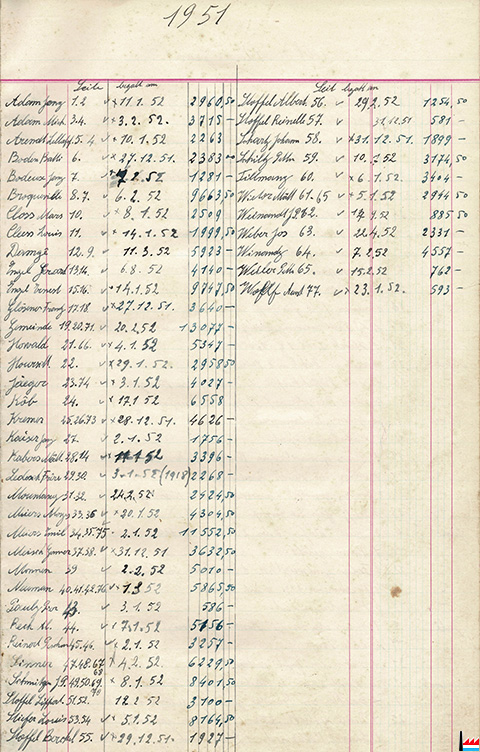 1951
Seite bezahlt am
Adam Jong 1.2 v x 11.1.52 2960,50
Adam Mich. 3.4. v x 3.2.52. 3715 -
Arendt 5.4 v x 10.1.52 2263
Boden Batti 6. v x 27.12.51. 2383 00
Bodeux Jong 7. v 7.2.52. 1281 -
Broquelle 8.7. v 6.2.52 9663,50
Closs Mars 10. v x 8.1.52 2509
Cless Louis 11. v x 14.1.52 1999,50
Demge 12.9. v 11.3.52 5923 -
Engel Gerard 13.14. v 6.8.52 4140 -
Engel Ernest 15.16. v x 14.1.52 9747,50
Glosener Franz 17.18. v x 27.12.51. 3640 -
Gemeinde 19.20.71. v 20.2.52 13077 -
Howald 21.66. v x 4.1.52 5347 -
22. v x 29.1.52. 2958,50
Jaeger 23.74 v x 3.1.52 4027
Köb 24. v x 17.1.52 6558
Kremer 25.26.73 v x 28.12.51. 4626 -
Kaiser Jong 27. v 2.1.52 1756
Kabers Math. 28.14 v 11.1.52 3396 -
Ledosch Frère 29.30. v 3.1.52 (1918) 2268 -
31.32 v 24.2.52. 2424,50
Meiers Aloys 33.36 v x 20.1.52. 4304,50
Emil 34.35.75 v 2.1.52 11552,50
Meisch 37.38. v x 31.12.51 3632,50
Monnen 39 v 2.2.52 5010 -
Neuman 40.41.42.76 v x 1.3.52 5865,50
v 3.1.52 586 -
44. v x 7.1.52 5156 -
Reinert 45.46. v x 2.1.52 3257 -
Simmer 47.48.67 68 v x 4.2.52 6229,50
Schmitgen J.P. 49.50.69. 70 v x 8.1.52 8401,50
Stoffel 51.52. 12.2.52 3100 -
Stiefer Louis 53.54 v x 5.1.52 8164,50
Stoffel 55. v x 29.12.51. 1927 -
Seit bezahlt am
Stoffel Albert 56. v 29.2.52 1254,50
Stoffel 57. v 31.12.51 581 -
Scharf Johann 58. v x 31.12.51. 1899 -
Schiltz 59. v 10.2.52 3174,50
Tillmanz 60. v x 6.1.52. 3404 -
Wester Matt 61.65 v x 5.1.52 2944,50
Wienandt J.P. 62. v 14.1.52 885,50
Weber Jos 63. v 22.4.52 2331 -
Winandy 64. v 7.2.52 4557 -
65. v 15.2.52 762 -
Wolff 77. v x 23.1.52. 593 -